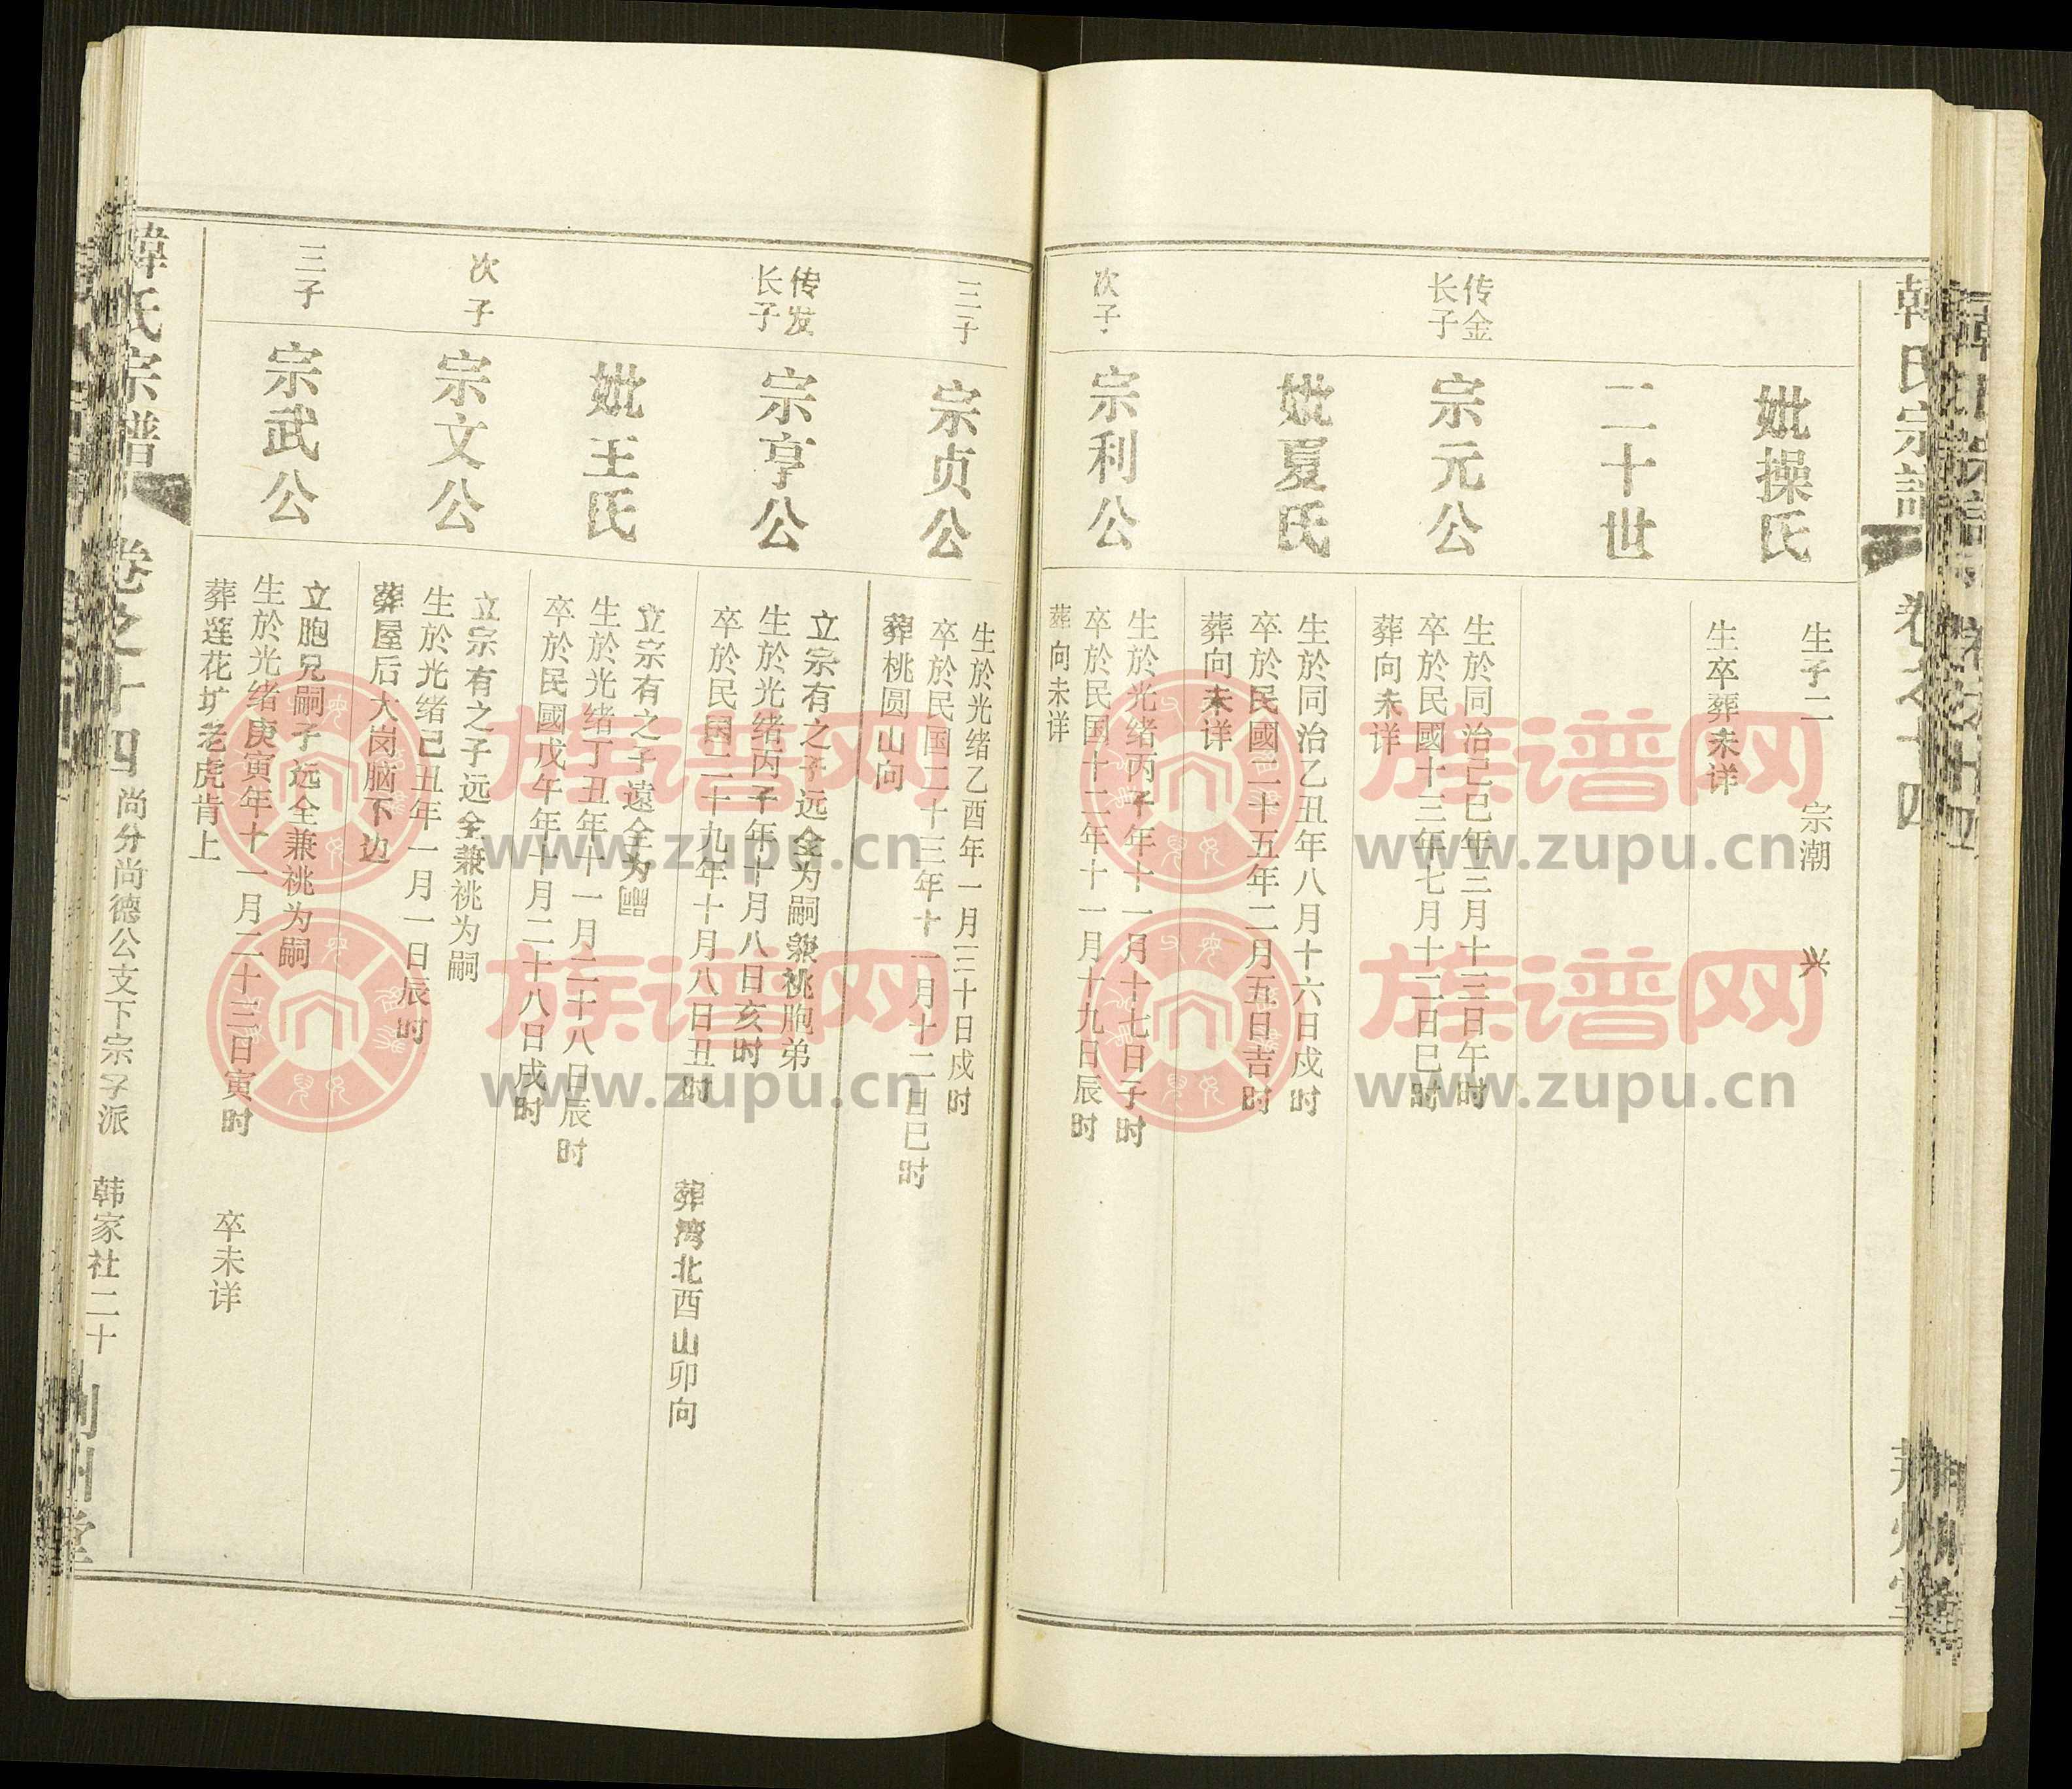 韩氏宗譜
卷之十四
荆州堂
妣操氏
生子二 宗潮 兴
生卒葬未详
二十世
传金
长子
宗元公
生於同治己巳年三月十三日午时
卒於民國十三年七月十二日巳时
葬向未详
妣夏氏
生於同治乙丑年八月十六日戌时
卒於民國二十五年二月五日吉时
葬向未详
次子
宗利公
生於光绪丙子年十一月十七日子时
卒於民国十二年十一月十九日辰时
葬向未详
三子
宗贞公
生於光绪乙酉年一月三十日戌时
卒於民国二十三年十一月十二日巳时
葬桃圆山向
传发
长子
宗亨公
立宗有之子远全为嗣兼祧胞弟
生於光绪丙子年十月八日亥时
卒於民国二十九年十月八日丑时
葬湾北酉山卯向
妣王氏
立宗有之子遠全为嗣
生於光绪丁丑年十一月二十八日辰时
卒於民國戊午年十月二十八日戌时
次子
宗文公
立宗有之子远全兼祧为嗣
生於光绪己丑年一月一日辰时
葬屋后大岗脑下边
三子
宗武公
立胞兄嗣子远全兼祧为嗣
生於光绪庚寅年十一月二十三日寅时 卒未详
葬莲花圹老虎肯上
韓氏宗譜
卷之十四
尚分尚德公支下宗字派
韩家社二十
荆州堂
族谱网
www.zupu.cn
族谱网
www.zupu.cn
族谱网
www.zupu.cn
族谱网
www.zupu.cn